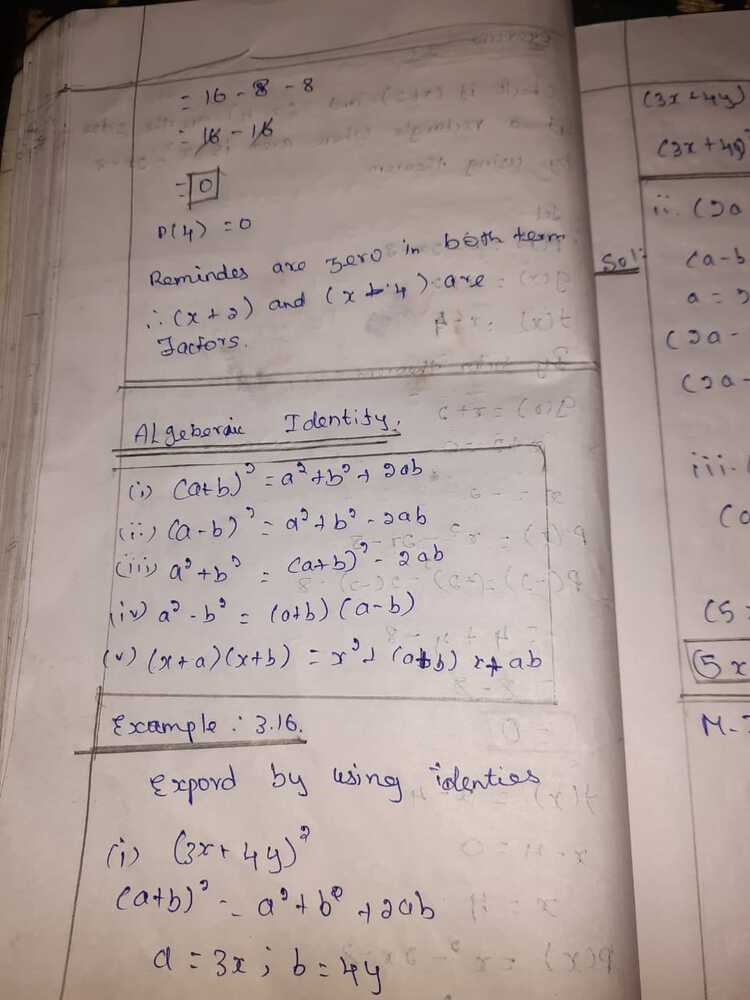 = 16 - 8 - 8
= 16 - 16
= 0
P(4) = 0
Remindes are zero in both term.
∴ (x + 2) and (x - 4) are
Factors.
Algeberaic Identity.
(i) (a+b)² = a² + b² + 2ab
(ii) (a-b)² = a² + b² - 2ab
(iii) a² + b² = (a+b)² - 2ab
(iv) a² - b² = (a+b) (a-b)
(v) (x+a) (x+b) = x² + (a+b) x + ab
Example : 3.16.
Expond by using identies
(i) (3x + 4y)²
(a+b)² = a² + b² + 2ab
a = 3x ; b = 4y
(3x + 4y)
(3x + 4y)
ii. (2a
Sol:
(a-b
a = 2
(2a -
(2a -
iii.
(a
(5
5x
M-